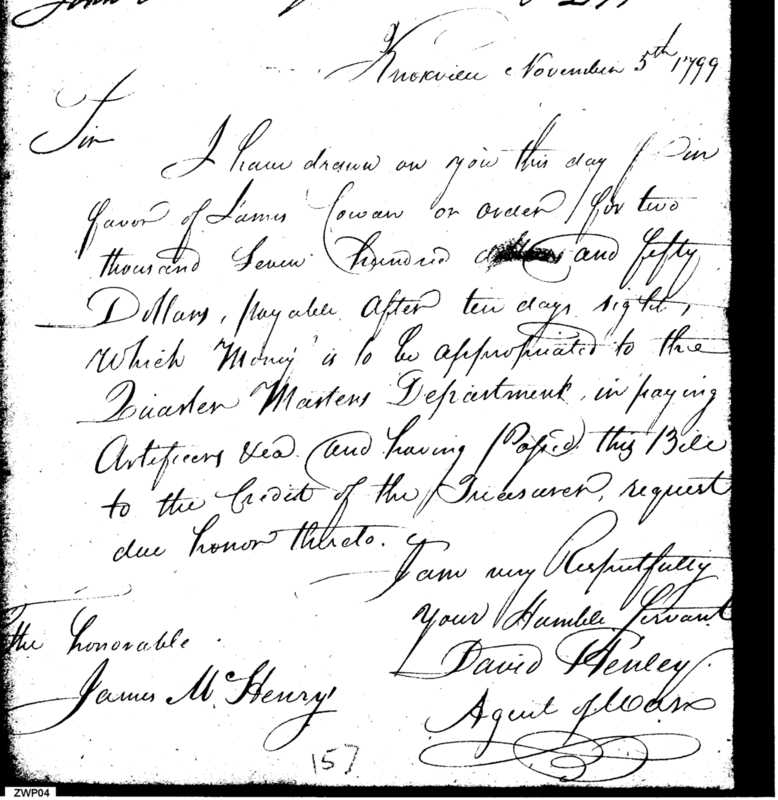 Knoxville November 5th 1799
Sir
I have drawn on you this day in
favor of James Cowan or order for two
thousand seven hundred and fifty
Dollars, payable after ten days sight,
which Money is to be appropriated to the
Quarter Masters Department, in paying
Artificers &ca. and having Passed this Bill
to the Credit of the Treasurer, request
due honor thereto.
I am very Respectfully
Your Humble Servant
David Henley
Agent of War
The honorable
James McHenry
157
ZWP04